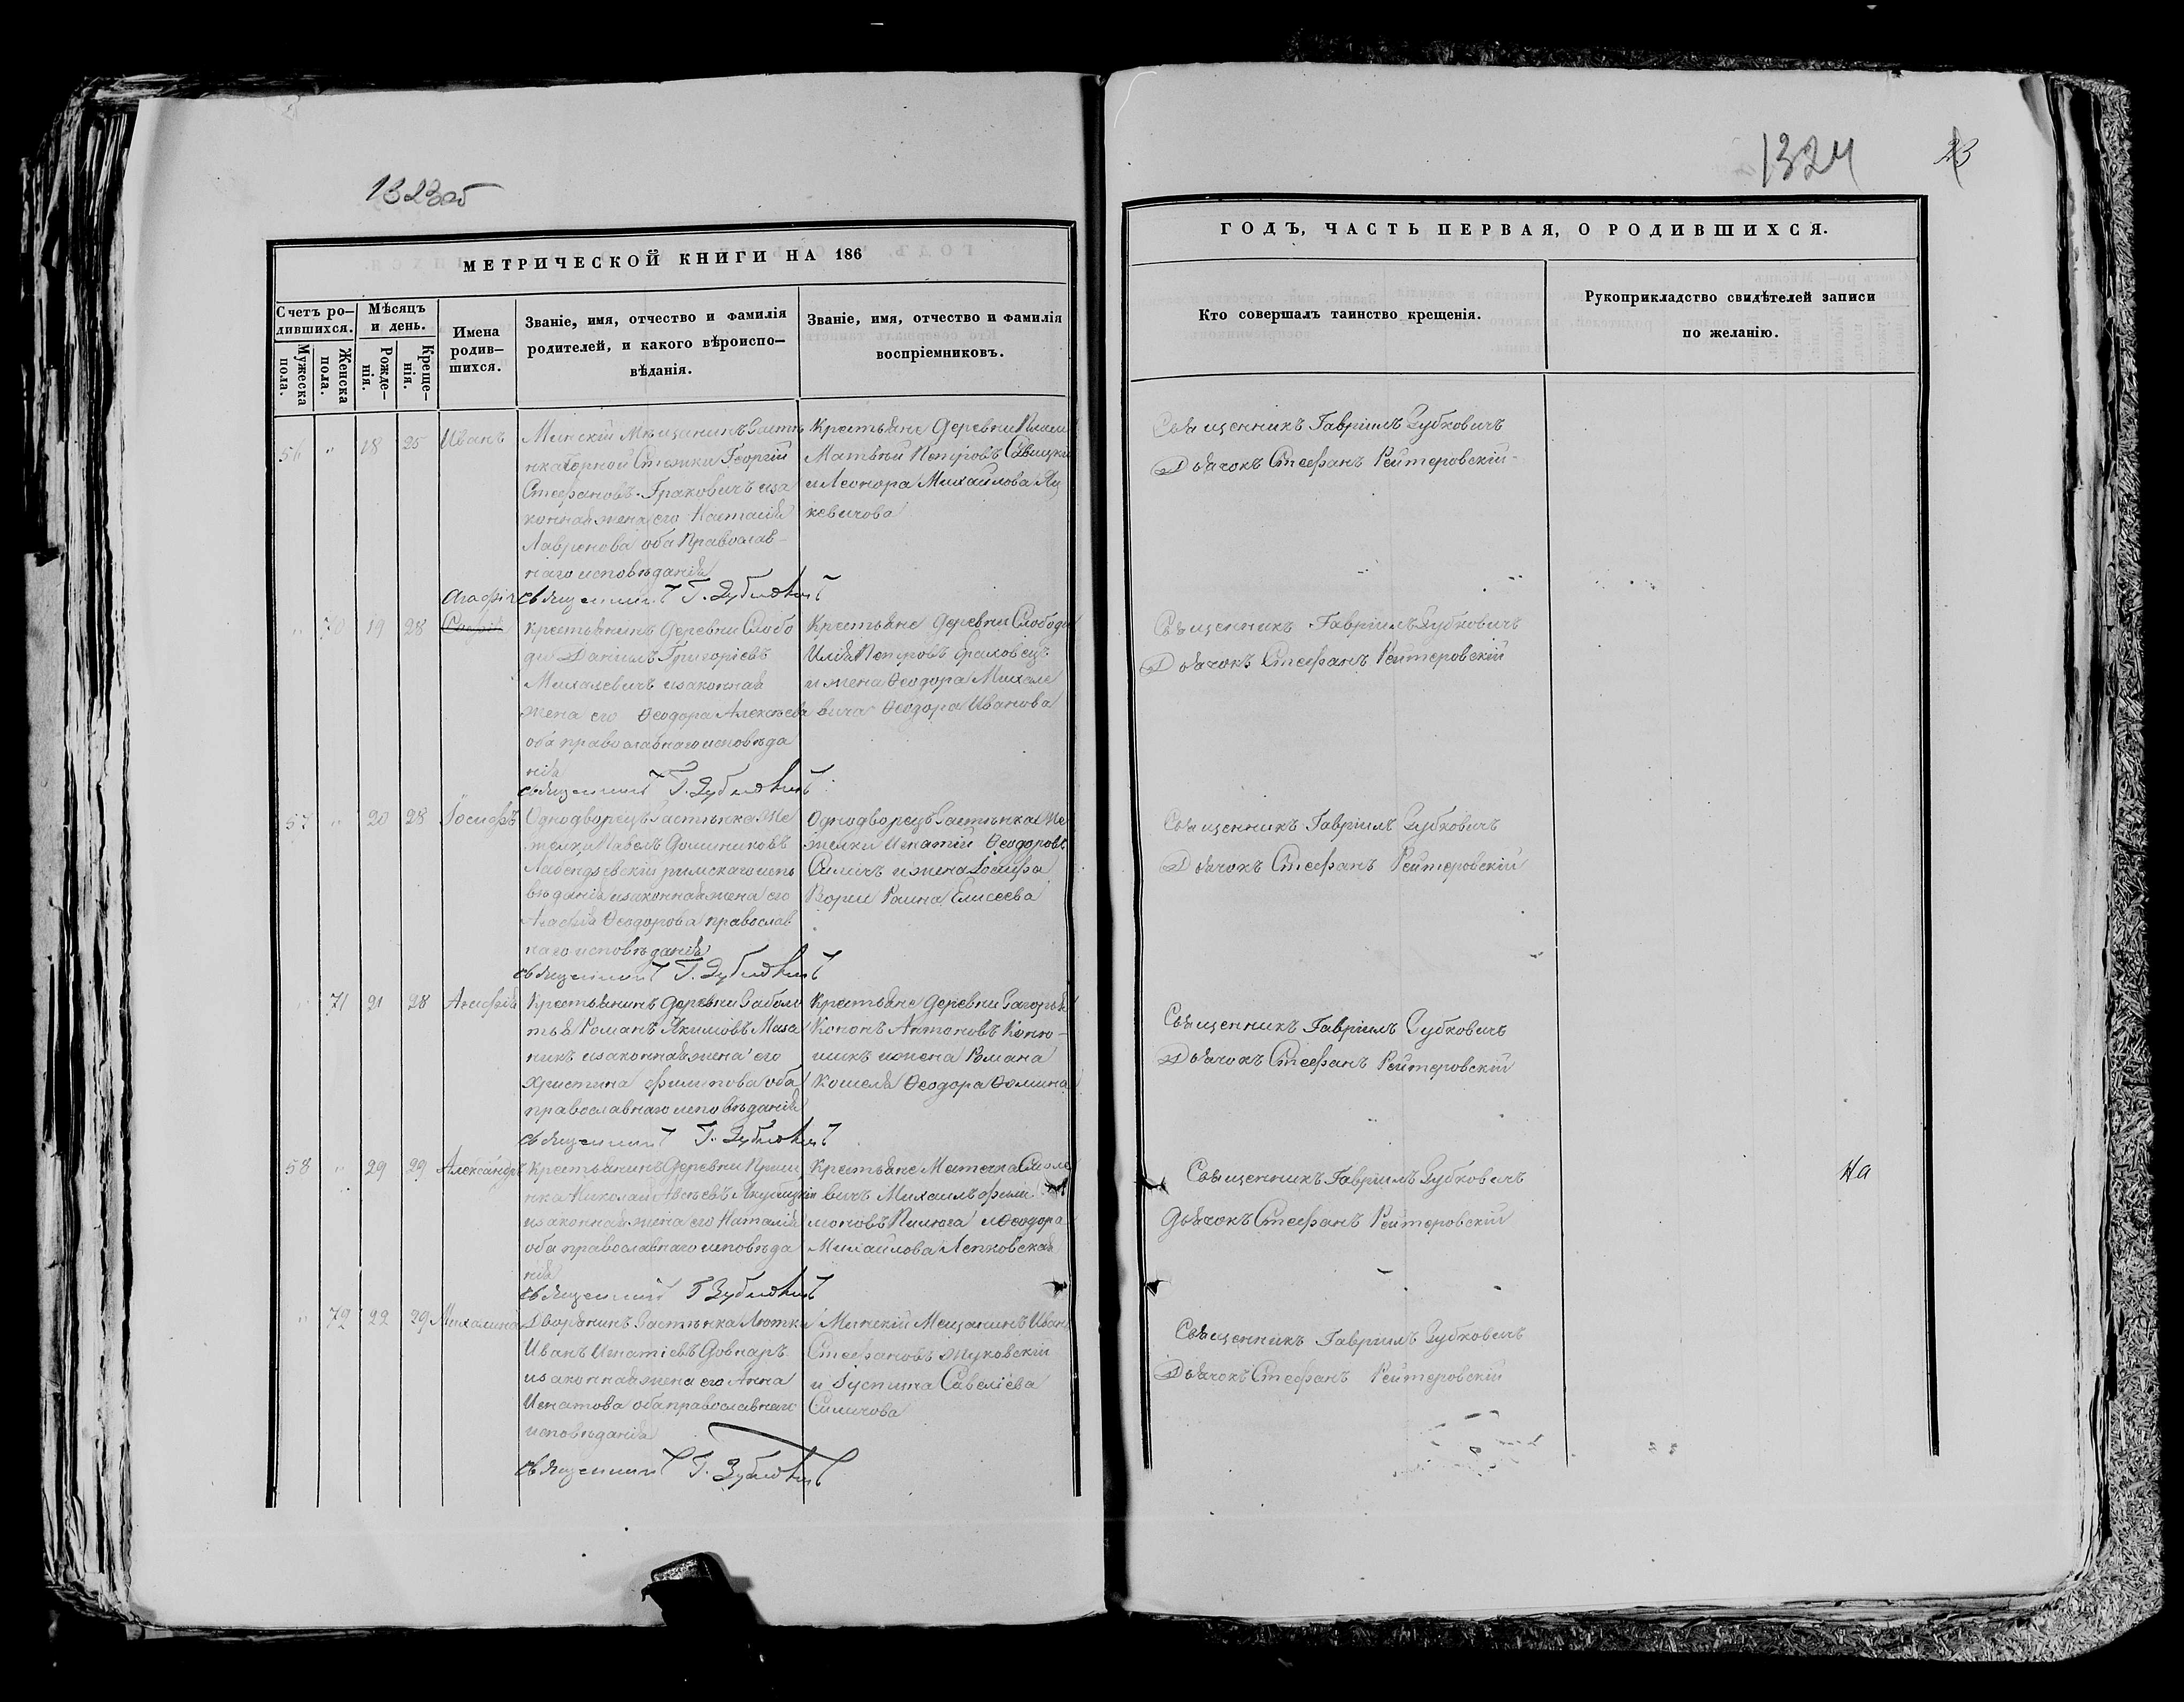 1323об
МЕТРИЧЕСКОЙ КНИГИ НА 186
Счетъ ро-
дившихся.
Мужеска
пола.
Женска
пола.
Мѣсяцъ
и день.
Рожде-
нія.
Креще-
нія.
Имена
родив-
шихся.
Званіе, имя, отчество и фамилія
родителей, и какого вѣроиспо-
вѣданія.
Званіе, имя, отчество и фамилія
воспріемниковъ.
56 " 18 25 Иванъ
Минскій Мѣщанинъ Застѣ
нка Горной Стежки Георгій
Стефановъ Граковичъ и за
конная жена его Настасія
Лавренова оба Православ-
наго исповѣданія
Священникъ Г. Зубковичъ
Крестьяне Деревни
Матвѣй Петровъ Савицкій
и Леонора Михайлова Яц
кевичова
" 70 19 28 Агафія
Крестьянинъ Деревни Слобо
ди Даніилъ Григоріевъ
Михалевичъ и законная
жена его Ѳеодора Алексѣева
оба православнаго исповѣда
нія
Священникъ Г. Зубковичъ
Крестьяне Деревни Слободи
Илія Петровъ
и жена Ѳеодора Михале
вича Ѳеодора Иванова
57 " 20 28 Іосифъ
Однодворецъ Застѣнка Ме
жежки Павелъ Доминиковъ
Лабендзевскій римскаго испо
вѣданія и законная жена его
Агафія Ѳеодорова православ
наго исповѣданія
Священникъ Г. Зубковичъ
Однодворецъ Застѣнка Ме
жежки Игнатій Ѳеодоровъ
Силичъ и жена Іосифа
Раина Елисеева
" 71 21 28 Агафія
Крестьянинъ Деревни Заболо
тья Романъ Якимовъ Маза
никъ и законная жена его
Христина Филипова оба
православнаго исповѣданія
Священникъ Г. Зубковичъ
Крестьяне Деревни Загорья
Кононъ Антоновъ Коню-
шикъ и жена Романа
Кошеля Ѳеодора Ѳомина
58 " 29 29 Александръ
Крестьянинъ Деревни
нка Николай Авсѣевъ Якубицкій
и законная жена его Наталія
оба православнаго исповѣда
нія
Священникъ Г. Зубковичъ
Крестьяне Местечка Смоле
вичъ Михаилъ Фили
моновъ Пилюга и Ѳеодора
Михайлова Лепковская
" 72 22 29 Михалина
Дворянинъ Застѣнка Лютки
Иванъ Игнатіевъ Довнаръ
и законная жена его Анна
Игнатова оба православнаго
исповѣданія
Священникъ Г. Зубковичъ
Минскій Мещанинъ Иванъ
Стефановъ Жуковскій
и Іустина Савеліева
Силичова
1324
23
ГОДЪ, ЧАСТЬ ПЕРВАЯ, О РОДИВШИХСЯ.
Кто совершалъ таинство крещенія.
Рукоприкладство свидѣтелей записи
по желанію.
Священникъ Гавріилъ Зубковичъ
Дьячокъ Стефанъ Рейтеровскій
Священникъ Гавріилъ Зубковичъ
Дьячокъ Стефанъ Рейтеровскій
Священникъ Гавріилъ Зубковичъ
Дьячокъ Стефанъ Рейтеровскій
Священникъ Гавріилъ Зубковичъ
Дьячокъ Стефанъ Рейтеровскій
Священникъ Гавріилъ Зубковичъ
Дьячокъ Стефанъ Рейтеровскій
На
Священникъ Гавріилъ Зубковичъ
Дьячокъ Стефанъ Рейтеровскій